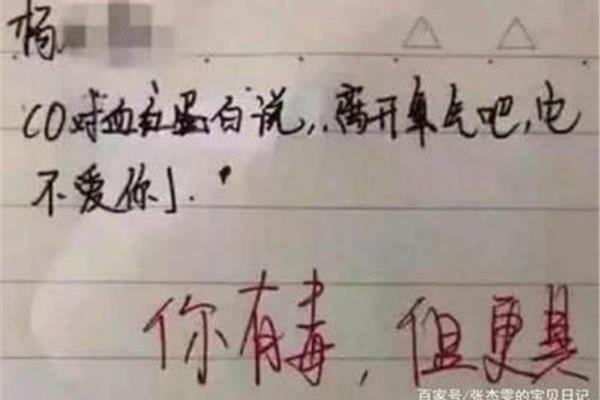 杨
CO对血红蛋白说,离开氧气吧,它
不爱你了.
你有毒,但更具
百家号/张杰雯的宝贝日记